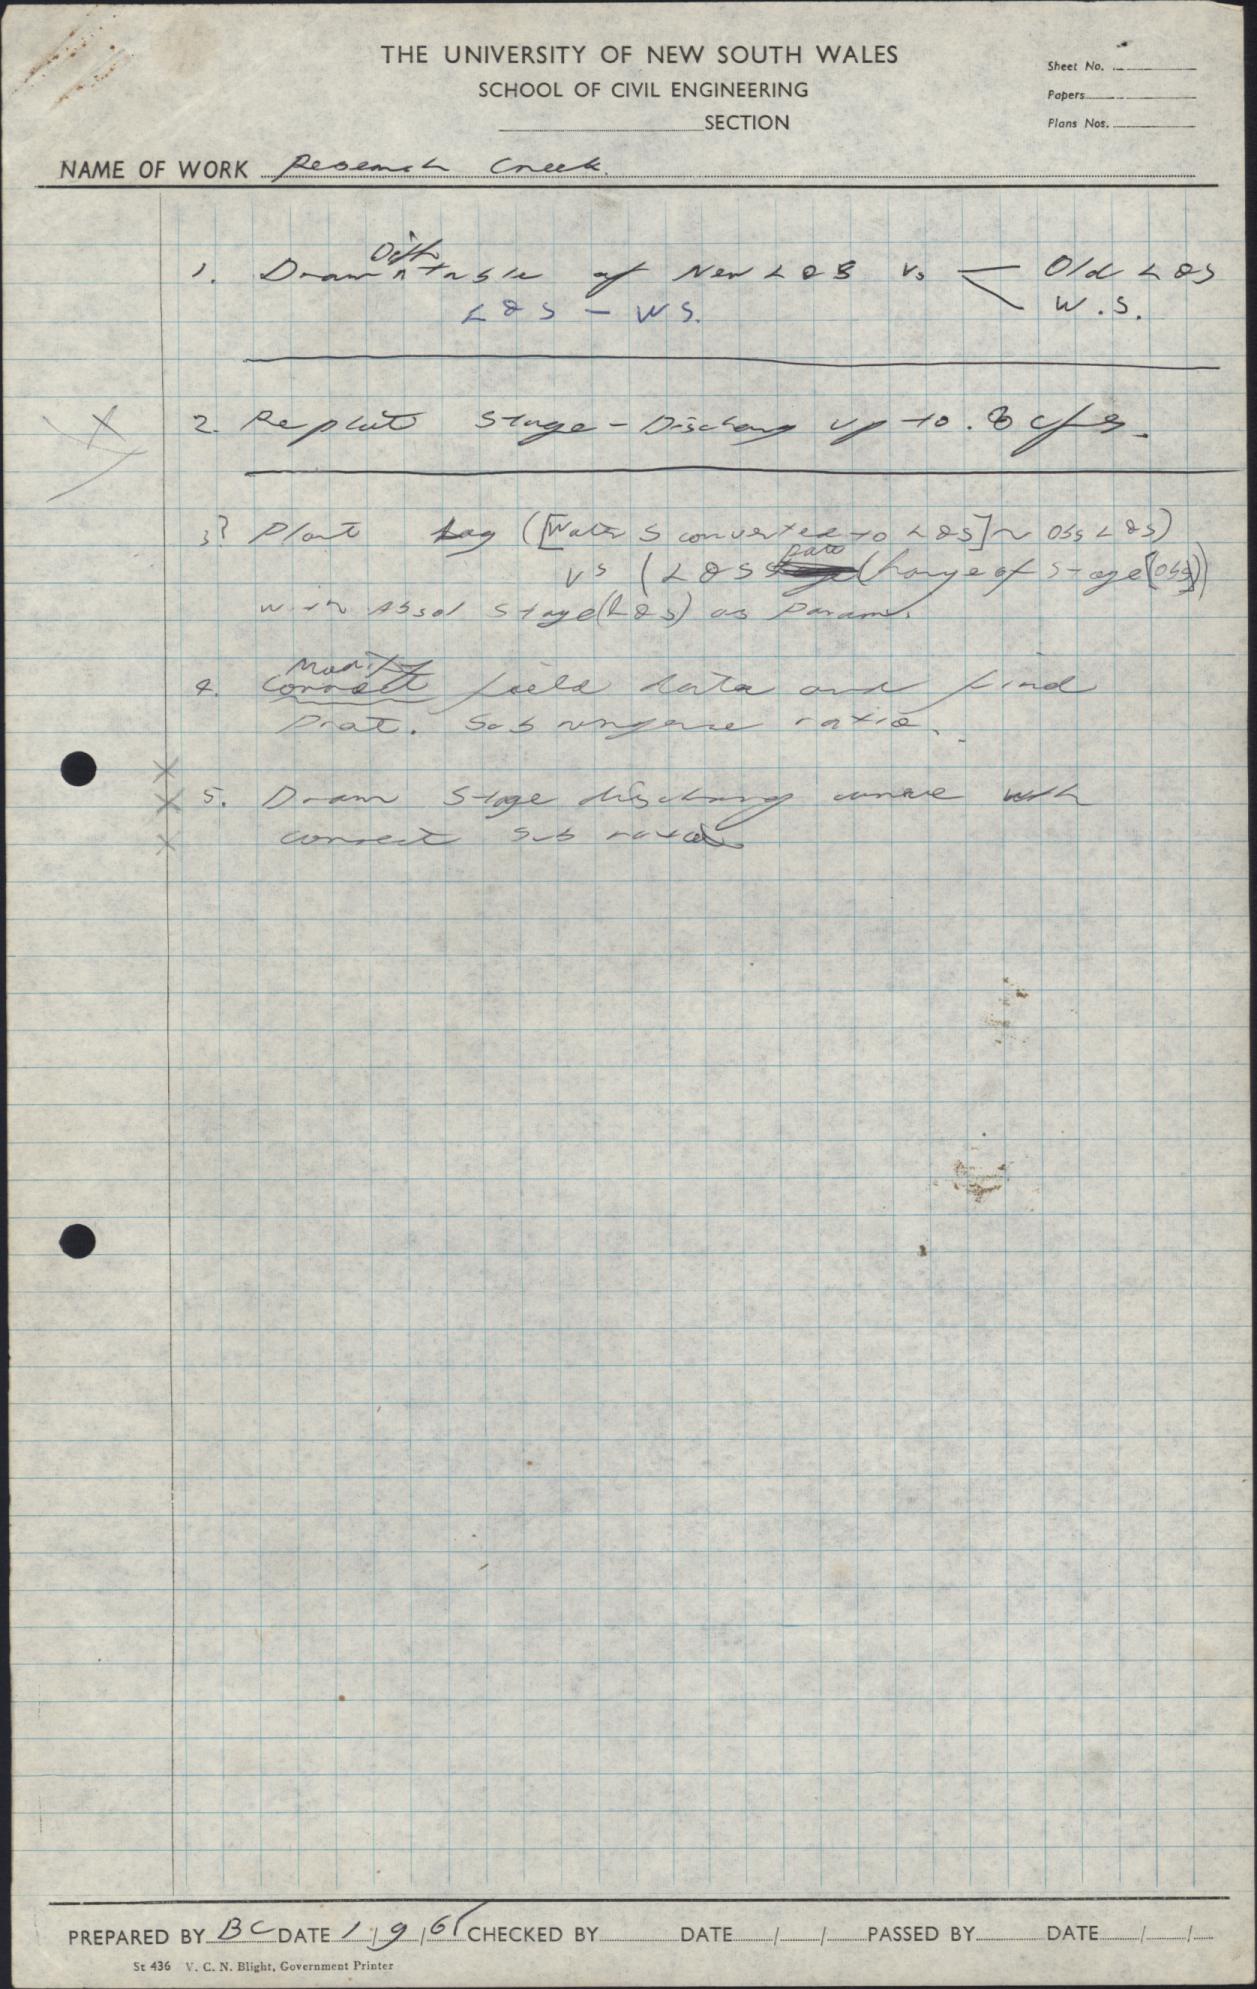 THE UNIVERSITY OF NEW SOUTH WALES
SCHOOL OF CIVIL ENGINEERING
SECTION
Sheet No.
Papers
Plans Nos.
NAME OF WORK Research Creek.
1. Draw Diff table of New L&S vs Old L&S
W.S.
L&S - WS.
2. Replot Stage - Discharg up to .8 cfs.
3? Plot Lag ([Water S converted to L&S] ~ Obs L&S)
vs (L&S Rate Change of Stage [Obs])
with Absol Stage (L&S) as Param.
4. Modify
Correct field data and find
Prot. Submergence ratio.
5. Draw Stage discharg curve with
correct sub ratio
PREPARED BY BC DATE 1/9/65 CHECKED BY DATE / / PASSED BY DATE / /
St 436 V. C. N. Blight, Government Printer